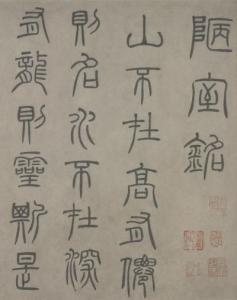 陋室銘
山不在高有僊
則名水不在深
有龍則靈斯是